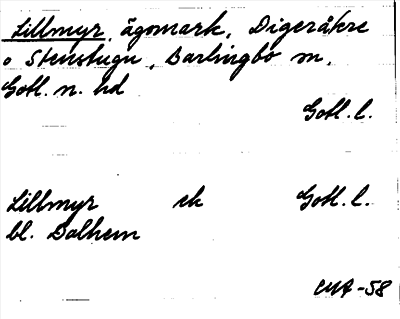 Lillmyr, ägomark, Digeråkre
o Stenstugu, Barlingbo sn,
Gotl. n. hd
Gotl. l.
Lillmyr ek Gotl. l.
bl. Dalhem
CMA-58